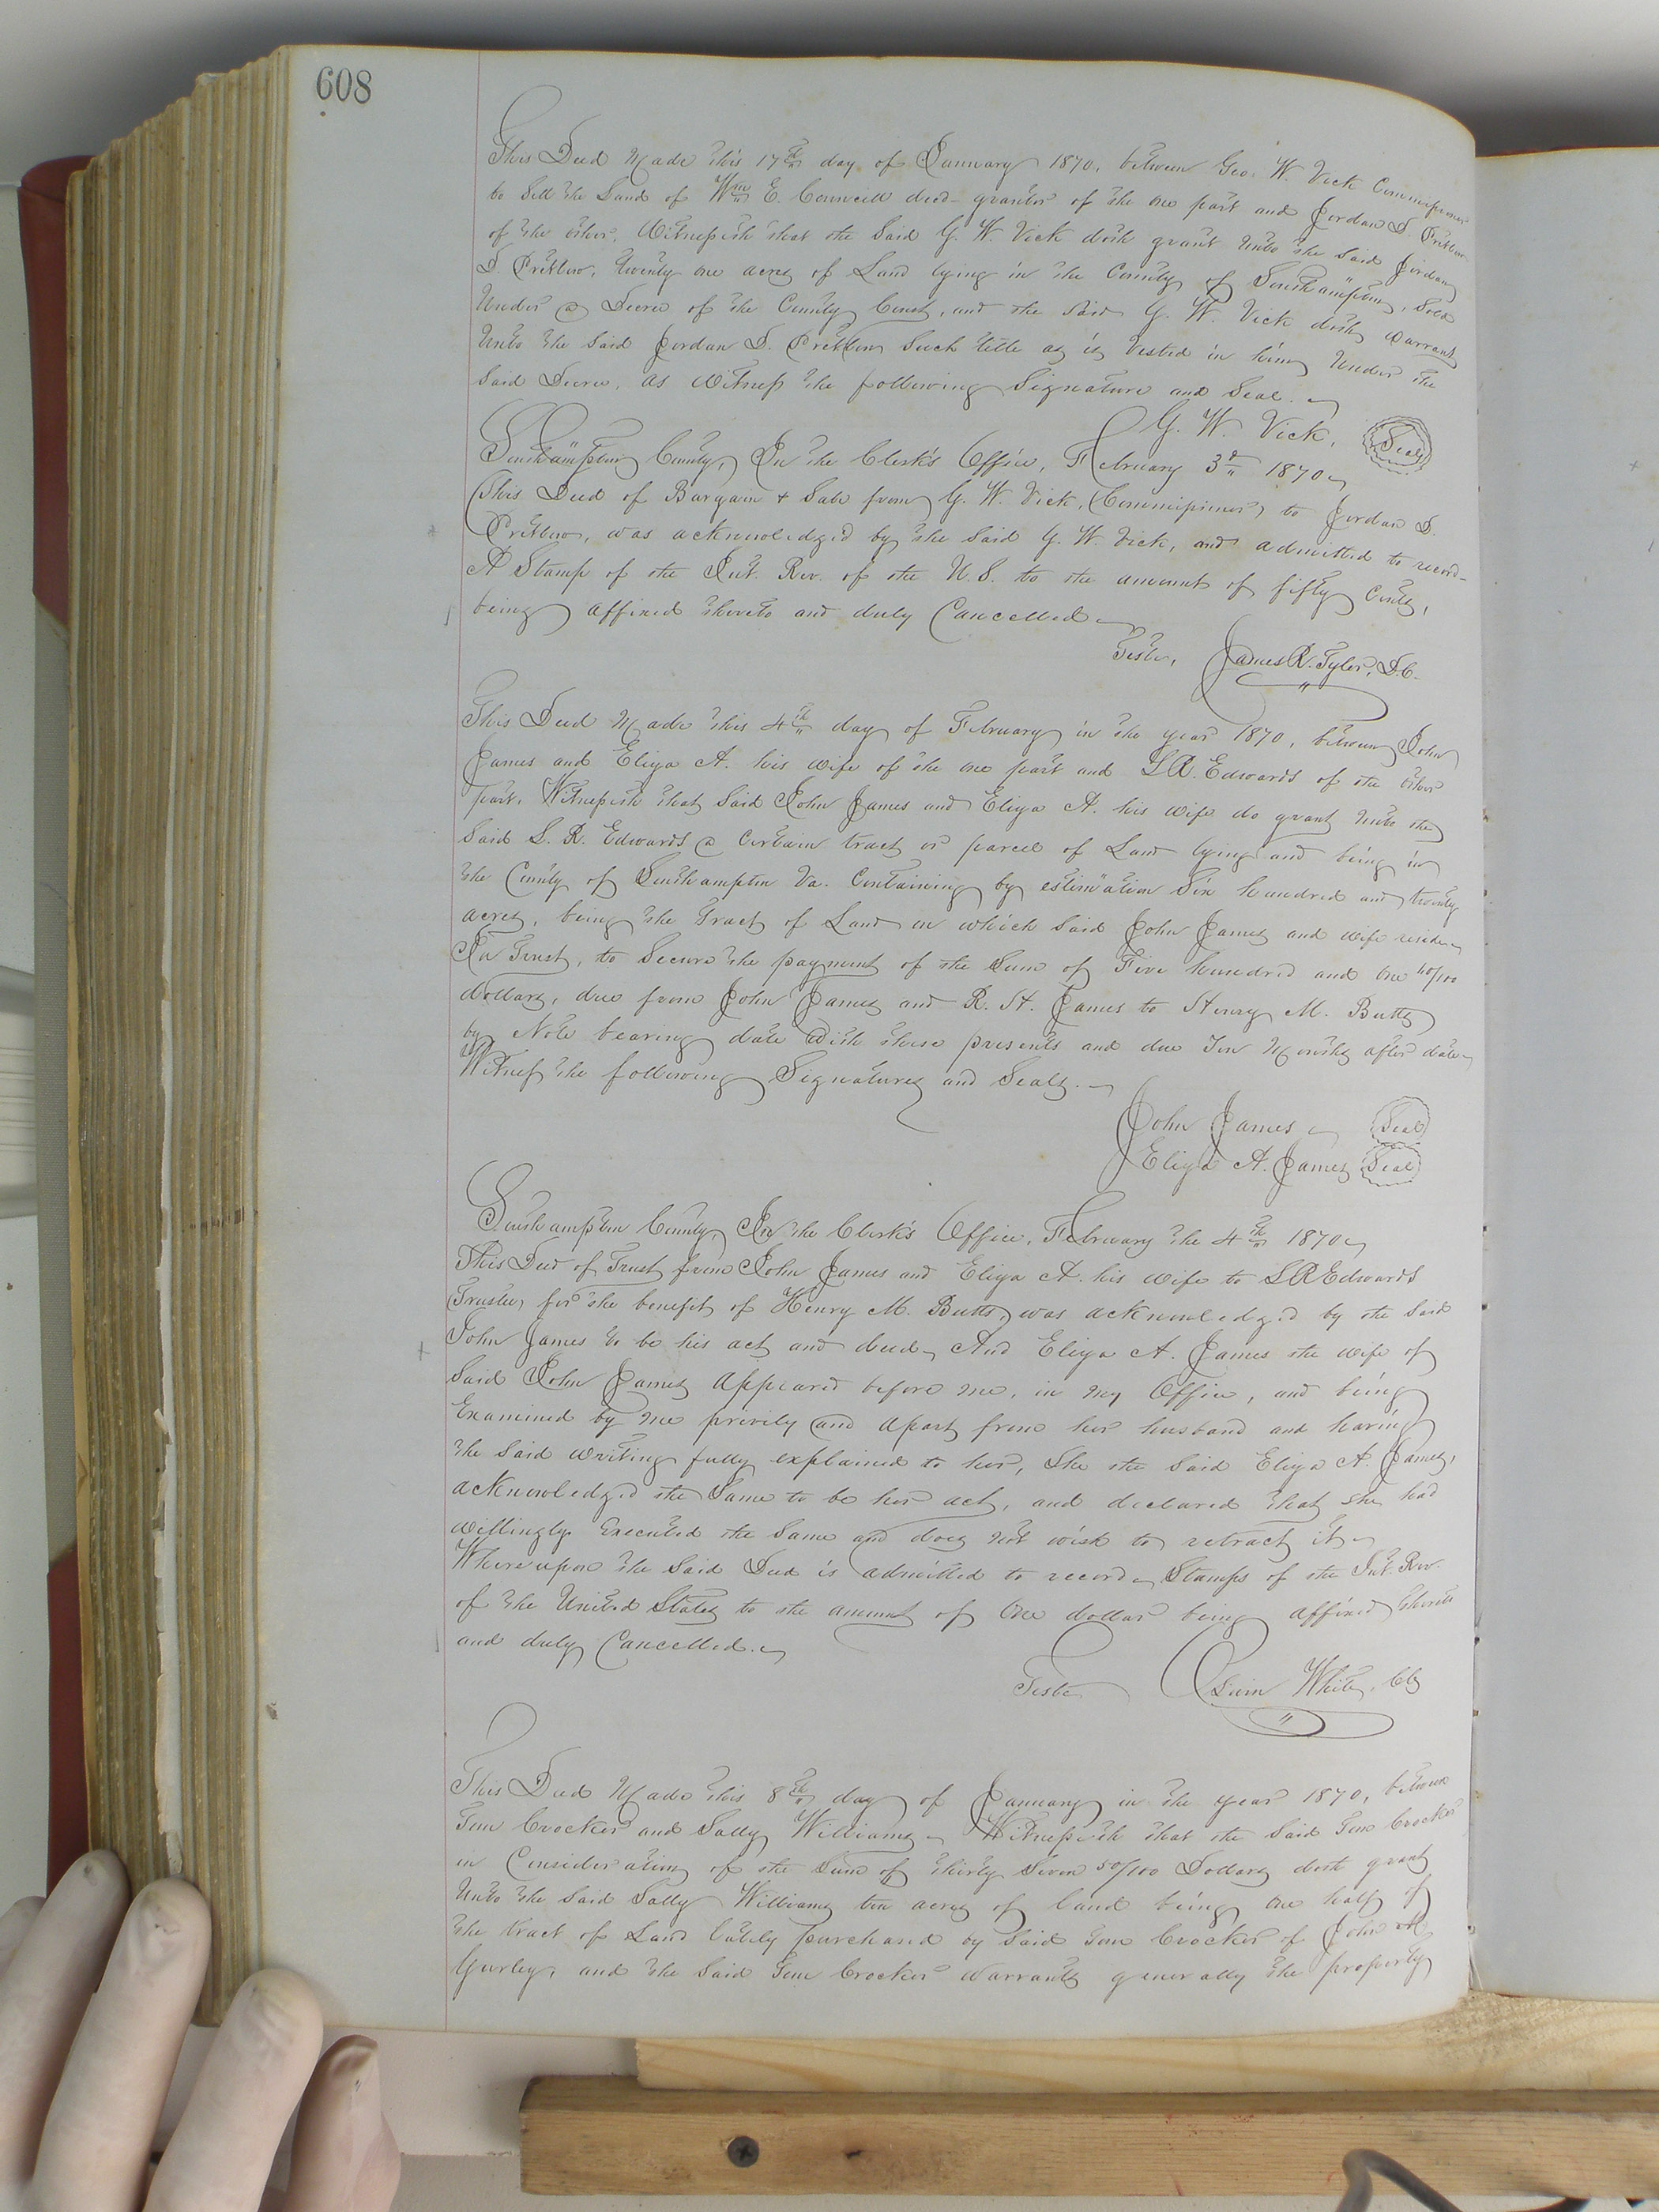 608
This Deed Made this 17th day of January 1870, between Geo. W. Vick Commissioner
to Sell the Land of Wm E. Councill decd grantor of the one part and Jordan D. Pretlow
of the other, Witnesseth that the Said G. W. Vick doth grant Unto the Said Jordan
D. Pretlow, Twenty one acres of Land lying in the County of Southampton, Sold
Under a Decree of the County Court, and the Said G. W. Vick doth warrant
Unto the Said Jordan D. Pretlow Such title as is Vested in him Under the
Said Decree, as Witness the following Signature and Seal.
G. W. Vick, Seal
Southampton County, In the Clerk's Office, February 3d 1870
This Deed of Bargain & Sale from G. W. Vick, (Commissioner) to Jordan D.
Pretlow, was acknowledged by the Said G. W. Vick, and admitted to record
A Stamp of the Int. Rev. of the U. S. to the amount of fifty Cents,
being affixed thereto and duly Cancelled
Teste, James R. Tyler, D.C.
This Deed Made this 4th day of February in the year 1870, between John
James and Eliza A. his wife of the one part and L R. Edwards of the other
part, Witnesseth that Said John James and Eliza A. his wife do grant Unto the
Said L. R. Edwards a Certain tract or parcel of Land lying and being in
the County of Southampton Va. Containing by estimation Six hundred and twenty
acres, being the Tract of Land on which Said John James and wife reside
In Trust, to Secure the payment of the Sum of Five hundred and one 40/100
dollars, due from John James and R. H. James to Henry M. Butts
by Note bearing date With these presents and due Ten Months after date
Witness the following Signatures and Seals.
John James Seal
Eliza A. James Seal
Southampton County, In the Clerk's Office, February the 4th 1870
This Deed of Trust from John James and Eliza A. his wife to L R Edwards
Trustee, for the benefit of Henry M. Butts, was acknowledged by the Said
John James to be his act and deed, And Eliza A. James the wife of
Said John James Appeared before me, in my Office, and being
Examined by me privily and apart from her husband and having
the Said writing fully explained to her, She the Said Eliza A. James,
acknowledged the Same to be her act, and declared that She had
willingly Executed the Same and does not wish to retract it
Whereupon the Said Deed is admitted to record, Stamps of the Int. Rev.
of the United States to the amount of One dollar being affixed thereto
and duly Cancelled.
Teste White, Clk
This Deed Made this 8th day of January in the year 1870, between
Tom Crocker and Sally Williams, Witnesseth that the Said Tom Crocker
in Consideration of the Sum of Thirty Seven 50/100 Dollars doth grant
Unto the Said Sally Williams ten acres of land being one half of
the tract of Land lately purchased by Said Tom Crocker of John
Gurley, and the Said Tom Crocker Warrants generally the property